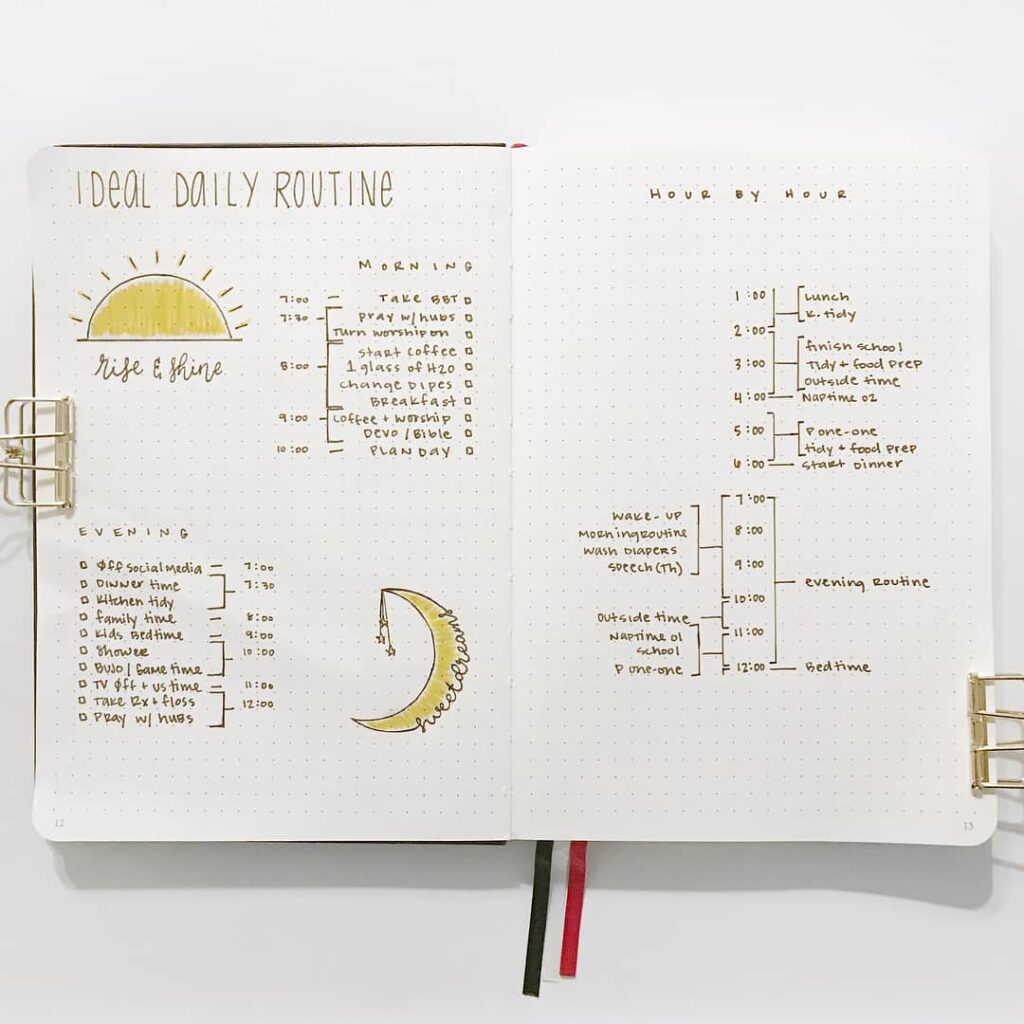 IDEAL DAILY ROUTINE
rise & shine
MORNING
7:00 – TAKE BBT
7:30 pray w/hubs
Turn worship on
8:00 start coffee
1 glass of H2O
change Dipes
Breakfast
9:00 coffee + worship
Devo / Bible
10:00 – PLAN DAY
EVENING
Øff social media – 7:00
Dinner time 7:30
kitchen tidy
family time – 8:00
kids Bedtime – 9:00
shower 10:00
BUJO / Game time
TV Øff + us time – 11:00
Take Rx + floss 12:00
Pray w/ hubs
sweet dreams
12
HOUR BY HOUR
1:00 Lunch
K. tidy
2:00
finish school
3:00 Tidy + food prep
outside time
4:00 – Naptime 02
5:00 P one-one
tidy + food prep
6:00 – start dinner
7:00
wake-up
8:00
Morning routine
wash diapers
9:00
speech (Th)
evening routine
10:00
outside time
11:00
Naptime 01
school
P one-one
12:00 – Bedtime
13